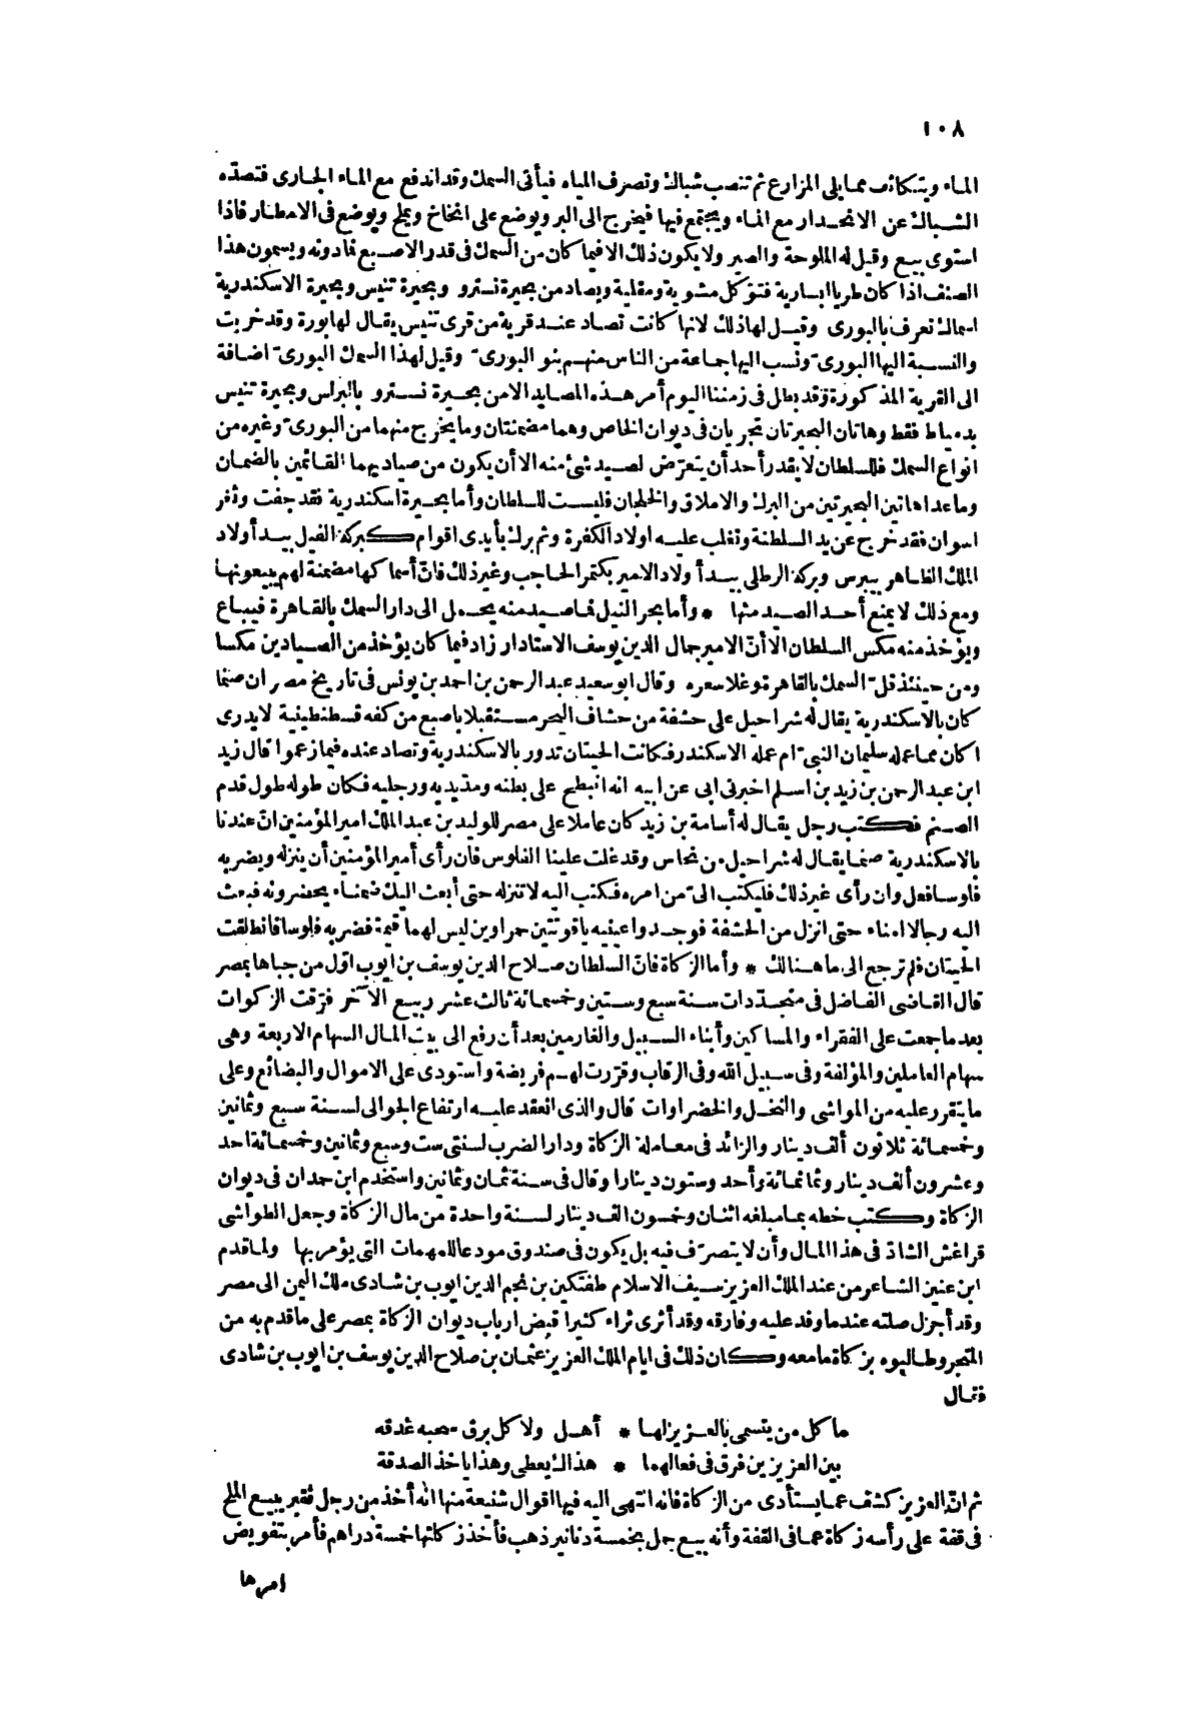 ١٠٨
الماء ويتكاثف مما يلى المزارع ثم تنصب شباك وتصرف المياه فيأتى السمك وقد اندفع مع الماء الجارى فتصدّه
الشباك عن الانحدار مع الماء ويجتمع فيها فيخرج الى البر ويوضع على انخاخ ويملح ويوضع فى الامطار فاذا
استوى بيع وقيل له الملوحة والصير ولا يكون ذلك الا فيما كان من السمك فى قدر الاصبع فما دونه ويسمون هذا
الصنف اذا كان طريا ابسارية فتؤكل مشوية ومقلية ويصاد من بحيرة نسترو وبحيرة تنيس وبحيرة الاسكندرية
اسماك تعرف بالبورى وقيل لها ذلك لانها كانت تصاد عند قرية من قرى تنيس يقال لها بورة وقد خربت
والنسبة اليها البورىّ ونسب اليها جماعة من الناس منهم بنو البورىّ وقيل لهذا السمك البورىّ اضافة
الى القرية المذكورة وقد بطل فى زمننا اليوم أمر هذه المصايد الا من بحيرة نسترو بالبرلس وبحيرة تنيس
بدمياط فقط وهاتان البحيرتان تجريان فى ديوان الخاص وهما مضمنتان وما يخرج منهما من البورىّ وغيره من
انواع السمك فللسلطان لا يقدر أحد أن يتعرّض لصيد شئ منه الا أن يكون من صياديهما القائمين بالضمان
وما عدا هاتين البحيرتين من البرك والاملاق والخلجان فليست للسلطان وأما بحيرة اسكندرية فقد جفت وثغر
اسوان فقد خرج عن يد السلطنة وتغلب عليه اولاد الكفرة وثم برك بأيدى اقوام كبركة الفيل بيد أولاد
الملك الظاهر بيبرس وبركة الرطلى بيد أولاد الامير بكتمر الحاجب وغير ذلك فانّ أسماكها مضمنة لهم يبيعونها
ومع ذلك لا يمنع أحد الصيد منها * وأما بحر النيل فما صيد منه يحمل الى دار السمك بالقاهرة فيباع
ويؤخذ منه مكس السلطان الا أنّ الامير جمال الدين يوسف الاستادار زاد فيما كان يؤخذ من الصيادين مكسا
ومن حينئذ قلّ السمك بالقاهرة وغلا سعره وقال ابو سعيد عبد الرحمن بن احمد بن يونس فى تاريخ مصر ان صنما
كان بالاسكندرية يقال له شراحيل على حشفة من حشاف البحر مستقبلا باصبع من كفه قسطنطينية لا يدرى
اكان مما عمله سليمان النبىّ ام عمله الاسكندر فكانت الحيتان تدور بالاسكندرية وتصاد عنده فيما زعموا قال زيد
ابن عبد الرحمن بن زيد بن اسلم اخبرنى ابى عن ابيه انه انبطح على بطنه ومدّ يديه ورجليه فكان طوله طول قدم
الصنم فكتب رجل يقال له أسامة بن زيد كان عاملا على مصر للوليد بن عبد الملك امير المؤمنين انّ عندنا
بالاسكندرية صنما يقال له شراحيل من نحاس وقد غلت علينا الفلوس فان رأى أمير المؤمنين أن ينزله ويضربه
فلوسا فعل وان رأى غير ذلك فليكتب الىّ من امره فكتب اليه لا تنزله حتى أبعث اليك ضمناء يحضرونه فبعث
اليه رجالا امناء حتى انزل من الحشفة فوجدوا عينيه ياقوتتين حمراوين ليس لهما قيمة فضربه فلوسا فانطلقت
الحيتان فلم ترجع الى ما هنالك * وأما الزكاة فانّ السلطان صلاح الدين يوسف بن ايوب اوّل من جباها بمصر
قال القاضى الفاضل فى متجدّدات سنة سبع وستين وخمسمائة ثالث عشر ربيع الآخر فرّقت الزكوات
بعد ما جمعت على الفقراء والمساكين وأبناء السبيل والغارمين بعد أن رفع الى بيت المال السهام الاربعة وهى
سهام العاملين والمؤلفة وفى سبيل الله وفى الرقاب وقرّرت لهم فريضة واستودى على الاموال والبضائع وعلى
ما يتقرر عليه من المواشى والنخل والخضراوات قال والذى انعقد عليه ارتفاع الجوالى لسنة سبع وثمانين
وخمسمائة ثلاثون ألف دينار والزائد فى معاملة الزكاة ودار الضرب لسنتى ست وسبع وثمانين وخمسمائة احد
وعشرون ألف دينار وثمانمائة وأحد وستون دينارا وقال فى سنة ثمان وثمانين واستخدم ابن حمدان فى ديوان
الزكاة وكتب خطه بما مبلغه اثنان وخمسون الف دينار لسنة واحدة من مال الزكاة وجعل الطواشى
قراغش الشادّ فى هذا المال وأن لا يتصرّف فيه بل يكون فى صندوق مودعا للمهمات التى يؤمر بها ولما قدم
ابن عنين الشاعر من عند الملك العزيز سيف الاسلام طغتكين بن نجم الدين ايوب بن شادى ملك اليمن الى مصر
وقد أجزل صلته عندما وفد عليه وفارقه وقد أثرى ثراء كثيرا قبض ارباب ديوان الزكاة بمصر على ما قدم به من
المتجر وطالبوه بزكاة ما معه وكان ذلك فى ايام الملك العزيز عثمان بن صلاح الدين يوسف بن ايوب بن شادى
فقال
ما كل من يتسمى بالعزيز لها * أهل ولا كل برق سحبه غدقه
بين العزيزين فرق فى فعالهما * هذاك يعطى وهذا ياخذ الصدقة
ثم انّ العزيز كشف عما يستأدى من الزكاة فانه انتهى اليه فيها اقوال شنيعة منها انه أخذ من رجل فقير يبيع الملح
فى قفة على رأسه زكاة عما فى القفة وأنه بيع جمل بخمسة دنانير ذهب فأخذ زكاتها خمسة دراهم فأمر بتفويض
امرها